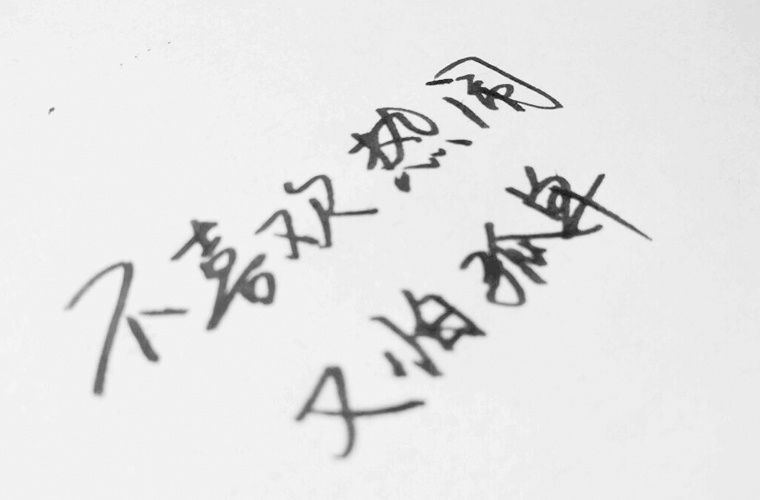 不喜欢热闹
又怕孤单